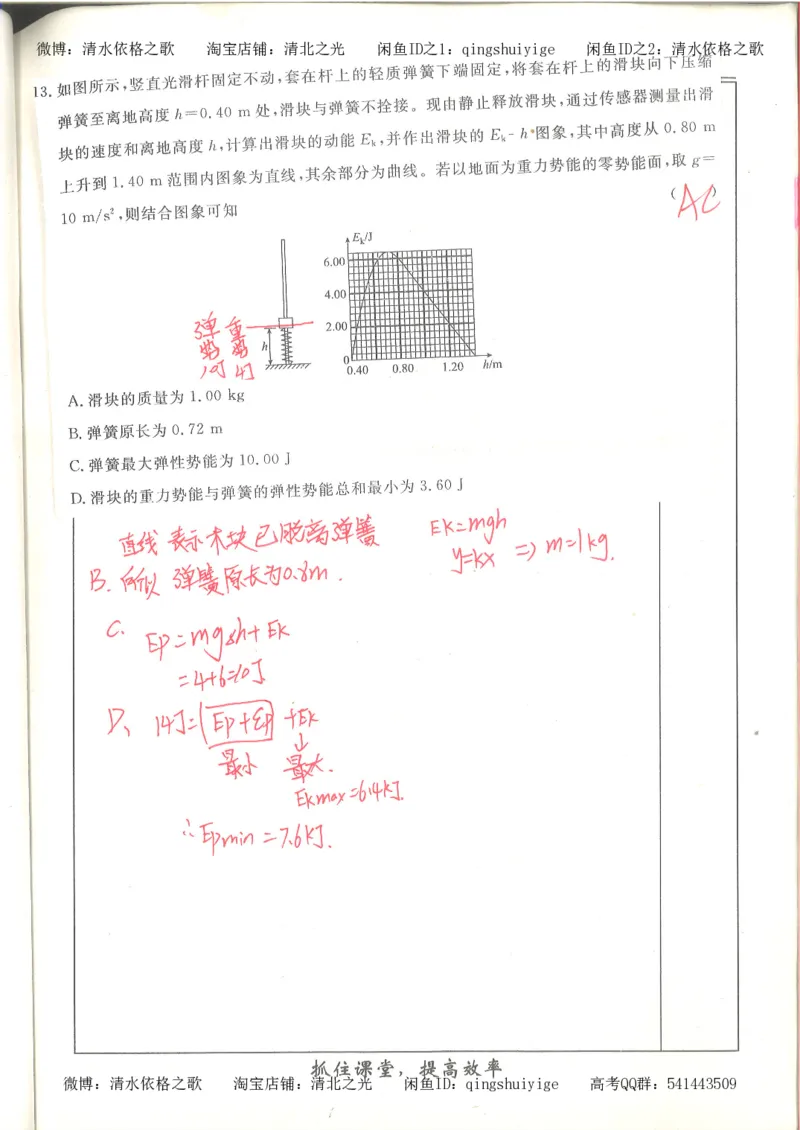 微博：清水依格之歌 淘宝店铺：清北之光 闲鱼ID之1：qingshuiyige 闲鱼ID之2：清水依格之歌
13. 如图所示,竖直光滑杆固定不动,套在杆上的轻质弹簧下端固定,将套在杆上的滑块向下压缩
弹簧至离地高度 h=0.40 m 处,滑块与弹簧不拴接。现由静止释放滑块,通过传感器测量出滑
块的速度和离地高度 h,计算出滑块的动能 Ek,并作出滑块的 Ek-h 图象,其中高度从 0.80 m
上升到 1.40 m 范围内图象为直线,其余部分为曲线。若以地面为重力势能的零势能面,取 g=
10 m/s²,则结合图象可知 ( AC )
Ek/J
6.00
4.00
2.00
0
0.40 0.80 1.20 h/m
h
弹 重
势 势
10J 4J
A. 滑块的质量为 1.00 kg
B. 弹簧原长为 0.72 m
C. 弹簧最大弹性势能为 10.00 J
D. 滑块的重力势能与弹簧的弹性势能总和最小为 3.60 J
直线 表示木块已脱离弹簧
B. 所以 弹簧原长为0.8m.
Ek=mgh
y=kx => m=1kg.
C. Ep=mgΔh+Ek
=4+6=10J
D、 14J= Ep+Ep +Ek
最小 最大.
Ekmax=6.4KJ.
∴Epmin=7.6KJ.
抓住课堂，提高效率
微博：清水依格之歌 淘宝店铺：清北之光 闲鱼ID：qingshuiyige 高考QQ群：541443509